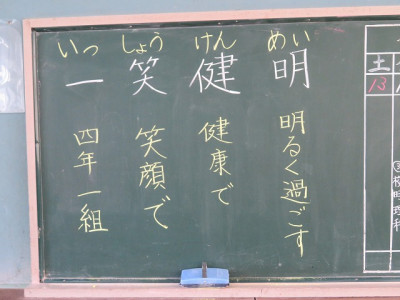 めい
明
明るく過ごす
けん
健
健康で
しょう
笑
笑顔で
いっ
一
四年一組
土
13